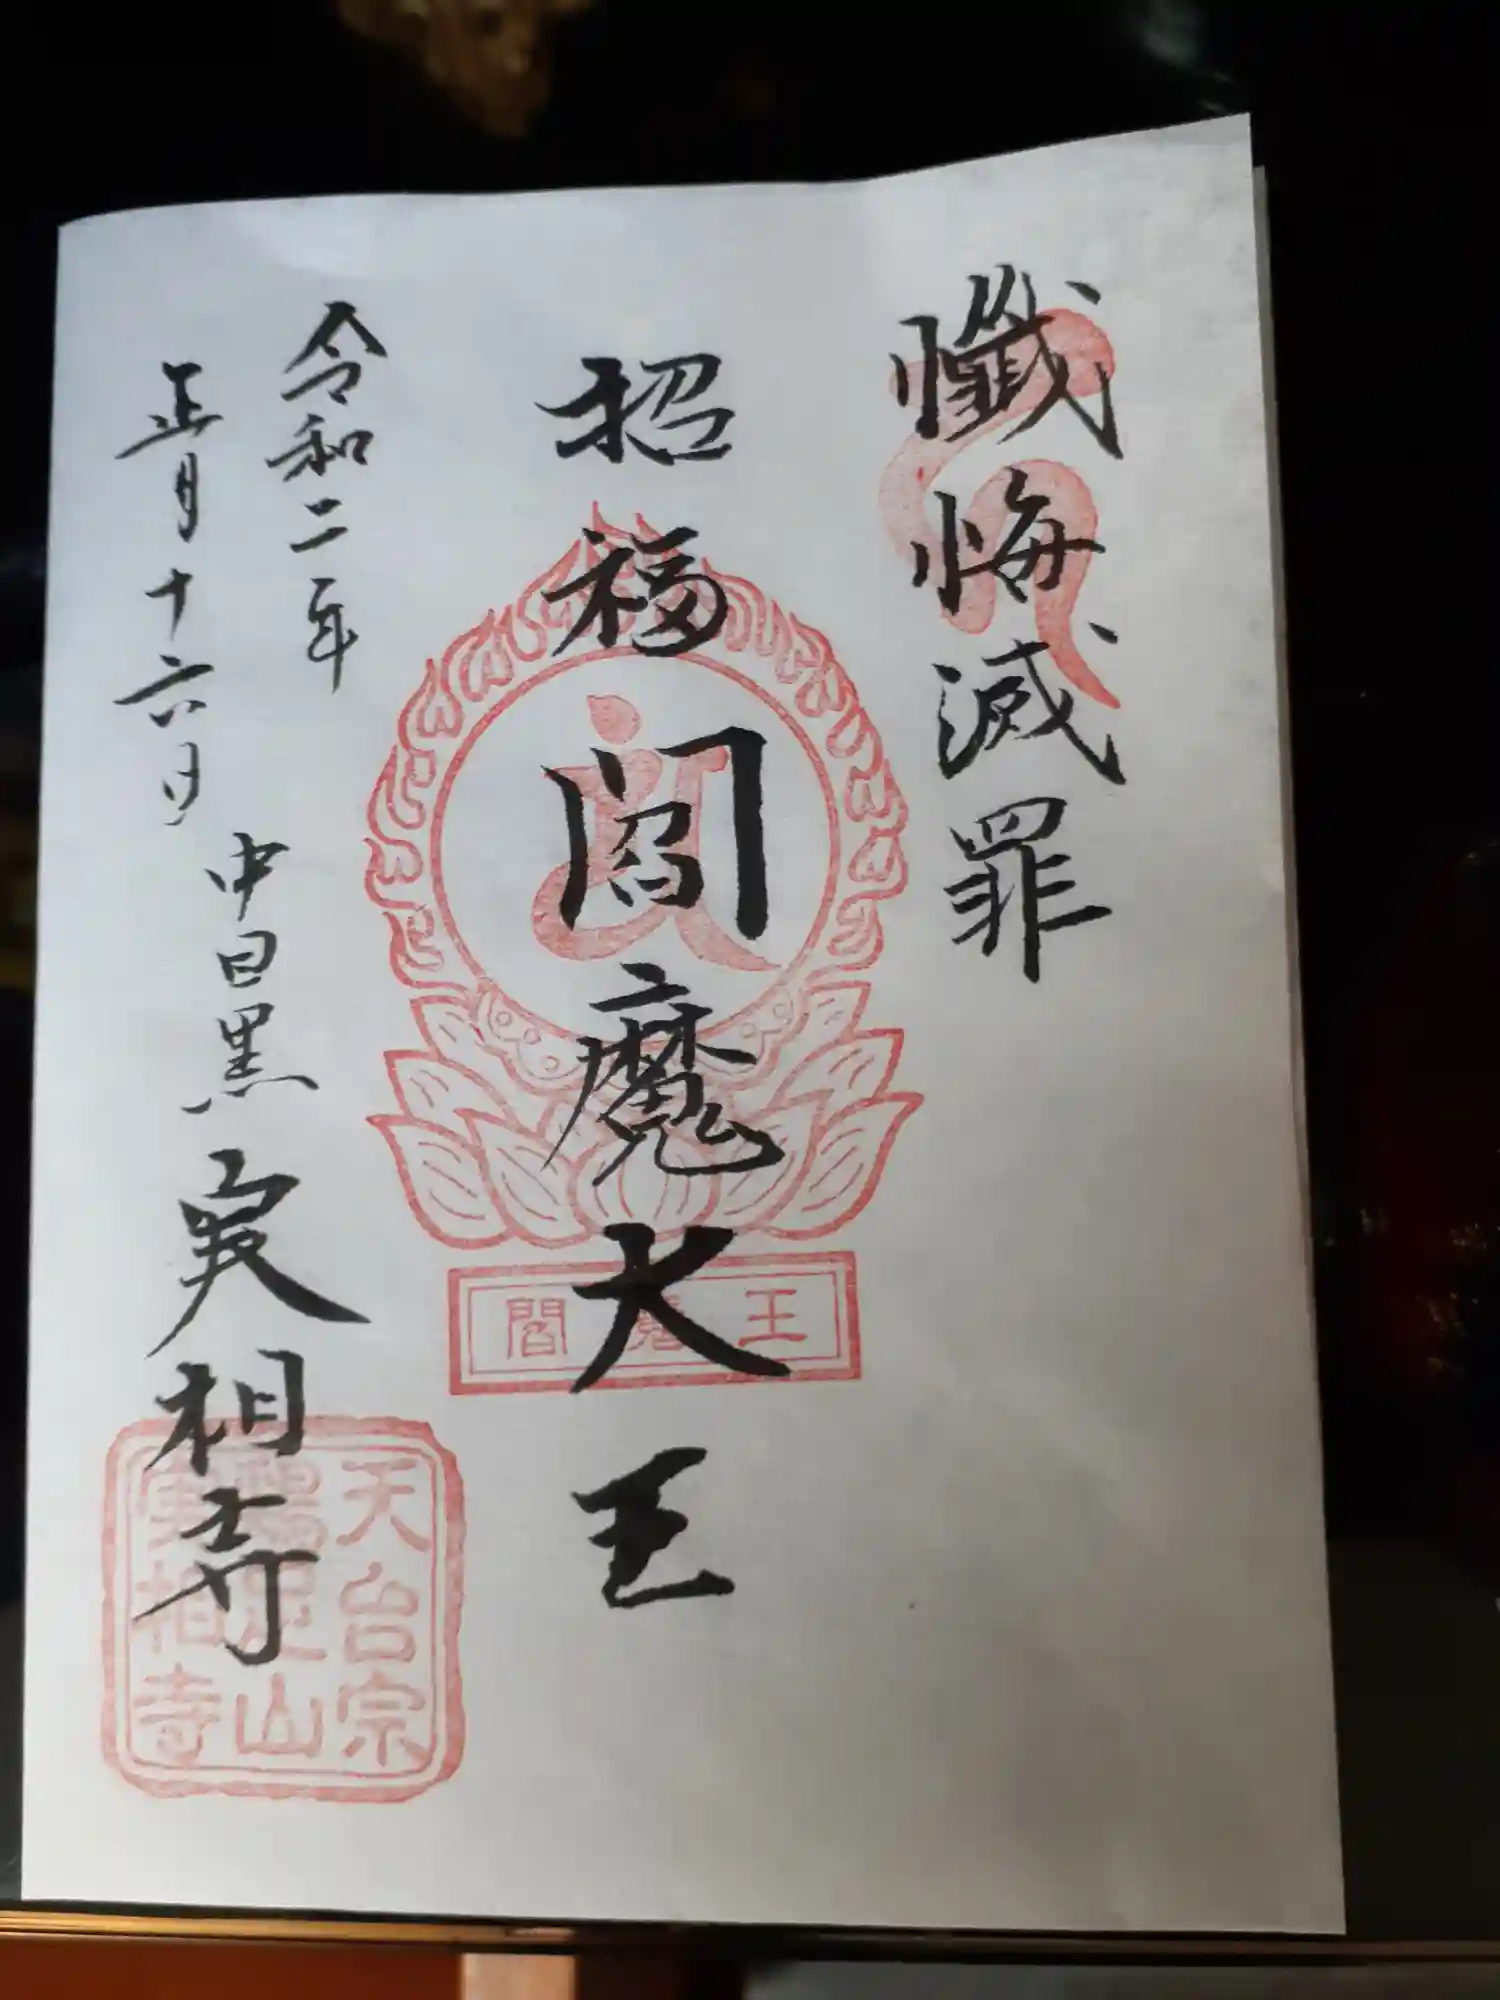 懺悔滅罪
招福閻魔大王
令和二年
正月十六日
中目黒実相寺
閻魔王
天台宗
鶏足山
実相寺